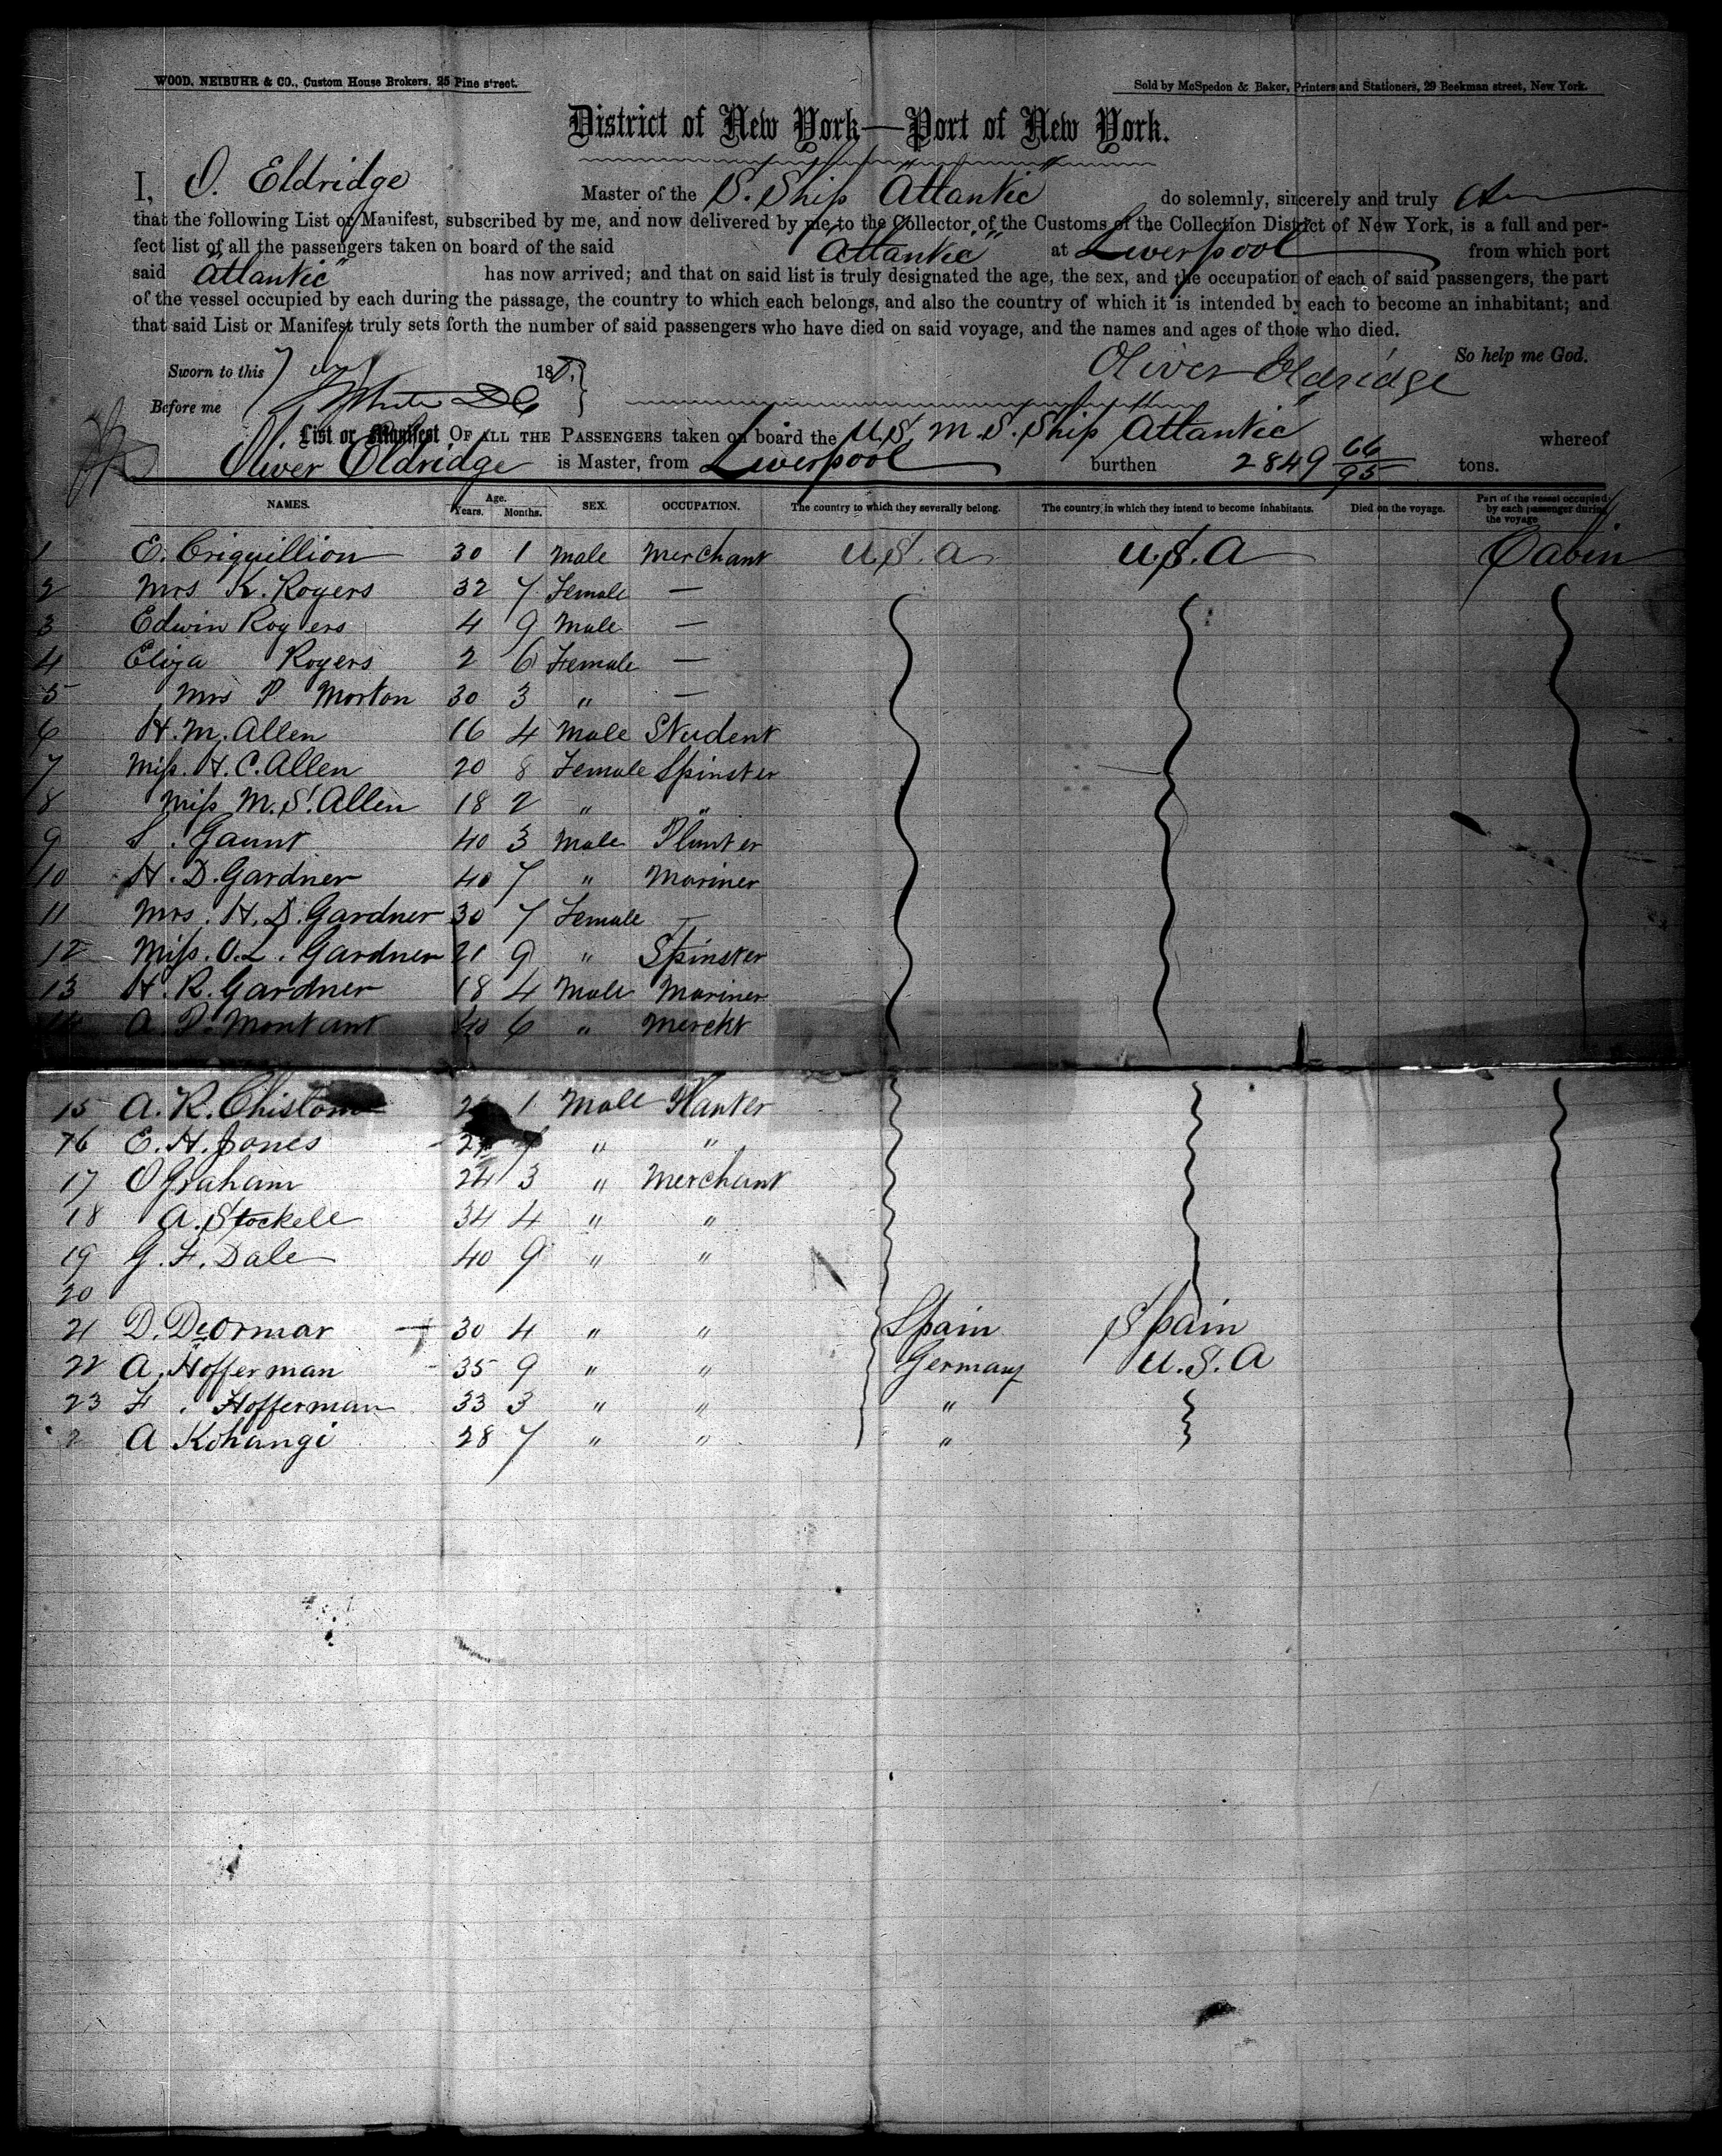 WOOD, NEIBUHR & CO., Custom House Brokers, 25 Pine street.
Sold by McSpedon & Baker, Printers and Stationers, 29 Beekman street, New York.
District of New York—Port of New York.
I, O. Eldridge Master of the S. Ship "Atlantic" do solemnly, sincerely and truly
that the following List or Manifest, subscribed by me, and now delivered by me to the Collector of the Customs of the Collection District of New York, is a full and per-
fect list of all the passengers taken on board of the said "Atlantic" at Liverpool from which port
said "Atlantic" has now arrived; and that on said list is truly designated the age, the sex, and the occupation of each of said passengers, the part
of the vessel occupied by each during the passage, the country to which each belongs, and also the country of which it is intended by each to become an inhabitant; and
that said List or Manifest truly sets forth the number of said passengers who have died on said voyage, and the names and ages of those who died.
So help me God.
Sworn to this 18
Oliver Eldridge
Before me
List or Manifest OF ALL THE PASSENGERS taken on board the U.S. M. S. Ship "Atlantic" whereof
Oliver Eldridge is Master, from Liverpool burthen 2849 66/95 tons.
NAMES. Age. Years. Months. SEX. OCCUPATION. The country to which they severally belong. The country in which they intend to become inhabitants. Died on the voyage. Part of the vessel occupied by each passenger during the voyage
1 E. Criquillion 30 1 Male Merchant U.S.A U.S.A Cabin
2 Mrs K. Rogers 32 7 Female —
3 Edwin Rogers 4 9 Male —
4 Eliza Rogers 2 6 Female —
5 Mrs P Morton 30 3 " —
6 H. M. Allen 16 4 Male Student
7 Miss H. C. Allen 20 8 Female Spinster
8 Miss M. S. Allen 18 2 " "
9 S. Gaunt 40 3 Male Planter
10 H. D. Gardner 40 7 " Mariner
11 Mrs. H. D. Gardner 30 7 Female —
12 Miss. O. L. Gardner 21 9 " Spinster
13 H. R. Gardner 18 4 Male Mariner
14 A. P. Montant 40 6 " Mercht
15 A. R. Chislom 1 Male Planter
16 E. H. Jones " "
17 O Graham 24 3 " Merchant
18 A. Stockell 34 4 " "
19 G. F. Dale 40 9 " "
20
21 D. DeOrmar 30 4 " " Spain Spain
22 A. Hofferman 35 9 " " Germany U.S.A
23 F. Hofferman 33 3 " " "
2 A Kohangi 28 7 " " "